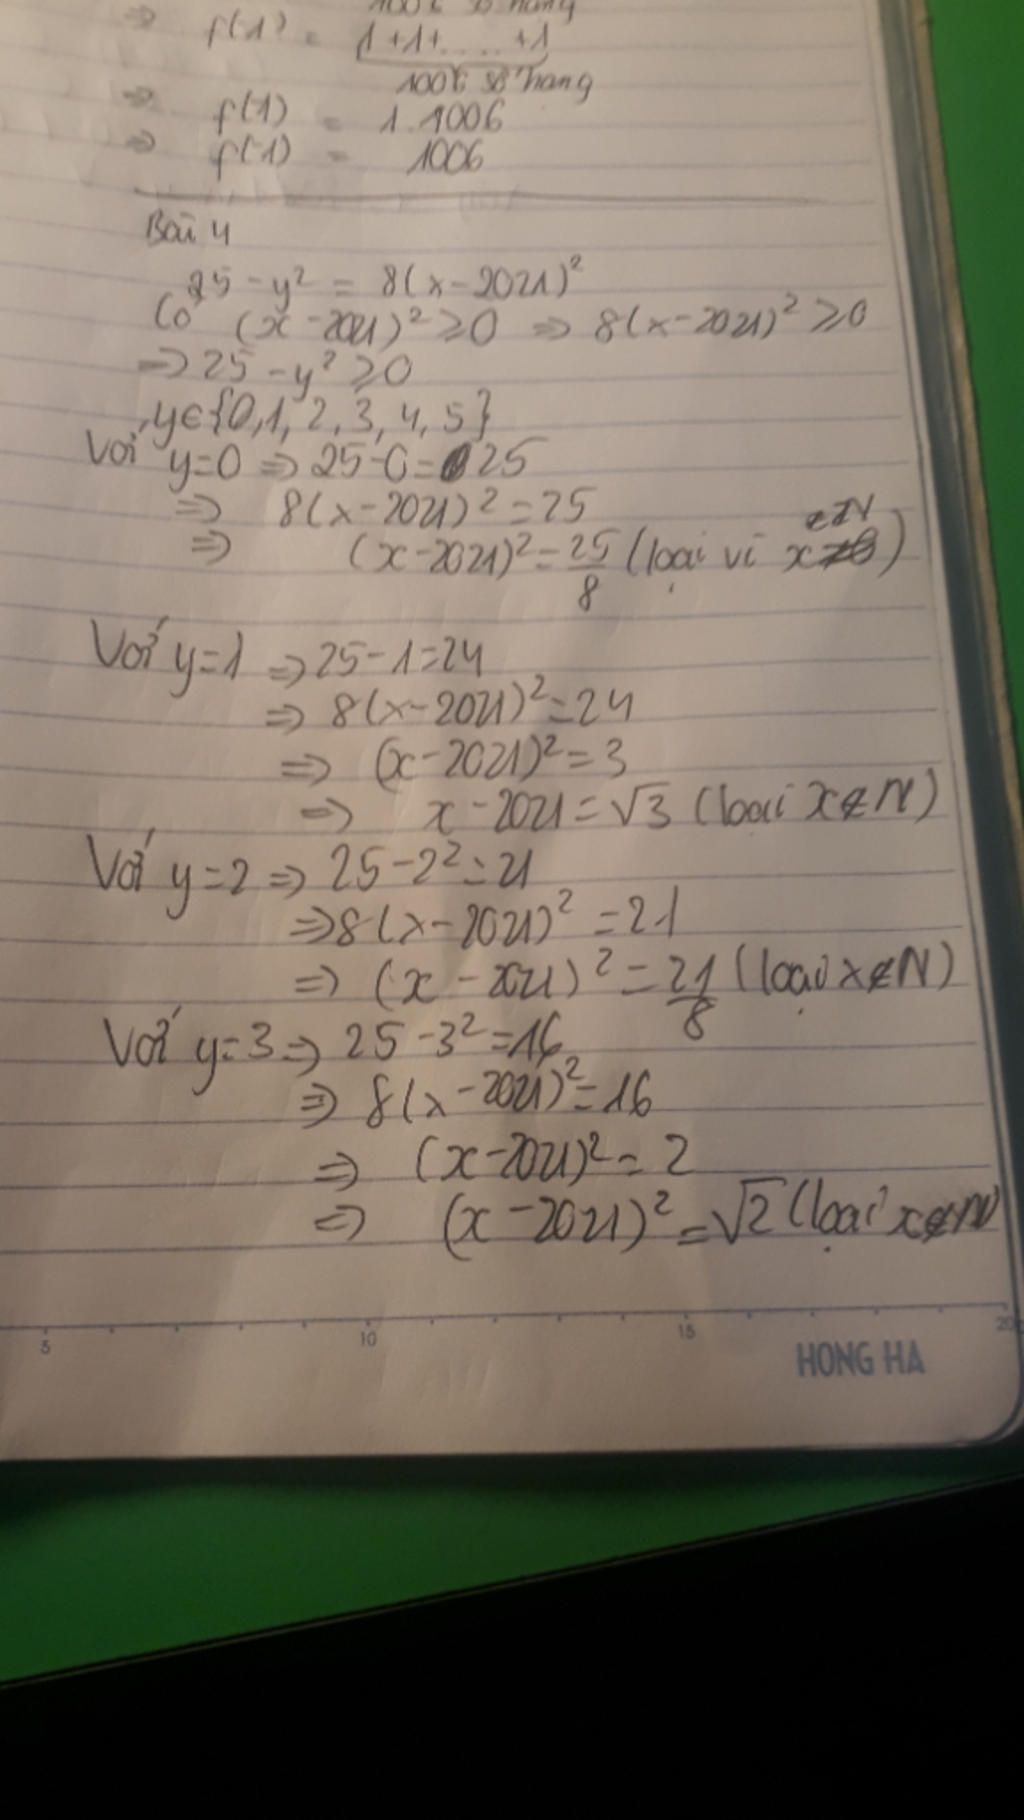 100 số hạng
⇒ f(1) = 1+1+.....+1
1006 số hạng
⇒ f(1) = 1.1006
⇒ f(1) = 1006
Bài 4
25 - y² = 8(x-2021)²
Có (x-2021)² ≥ 0 ⇒ 8(x-2021)² ≥ 0
⇒ 25 - y² ≥ 0
, y ∈ {0, 1, 2, 3, 4, 5}
Với y=0 ⇒ 25-0= 25
⇒ 8(x-2021)² = 25
⇒ (x-2021)² = 25/8 (loại vì x ∈ N)
Với y=1 ⇒ 25-1=24
⇒ 8(x-2021)² = 24
⇒ (x-2021)² = 3
⇒ x-2021 = √3 (loại x ∉ N)
Với y=2 ⇒ 25-2² = 21
⇒ 8(x-2021)² = 21
⇒ (x-2021)² = 21/8 (loại x ∉ N)
Với y=3 ⇒ 25-3² = 16
⇒ 8(x-2021)² = 16
⇒ (x-2021)² = 2
⇒ (x-2021)² = √2 (loại x ∉ N
5 10 15 20
HONG HA